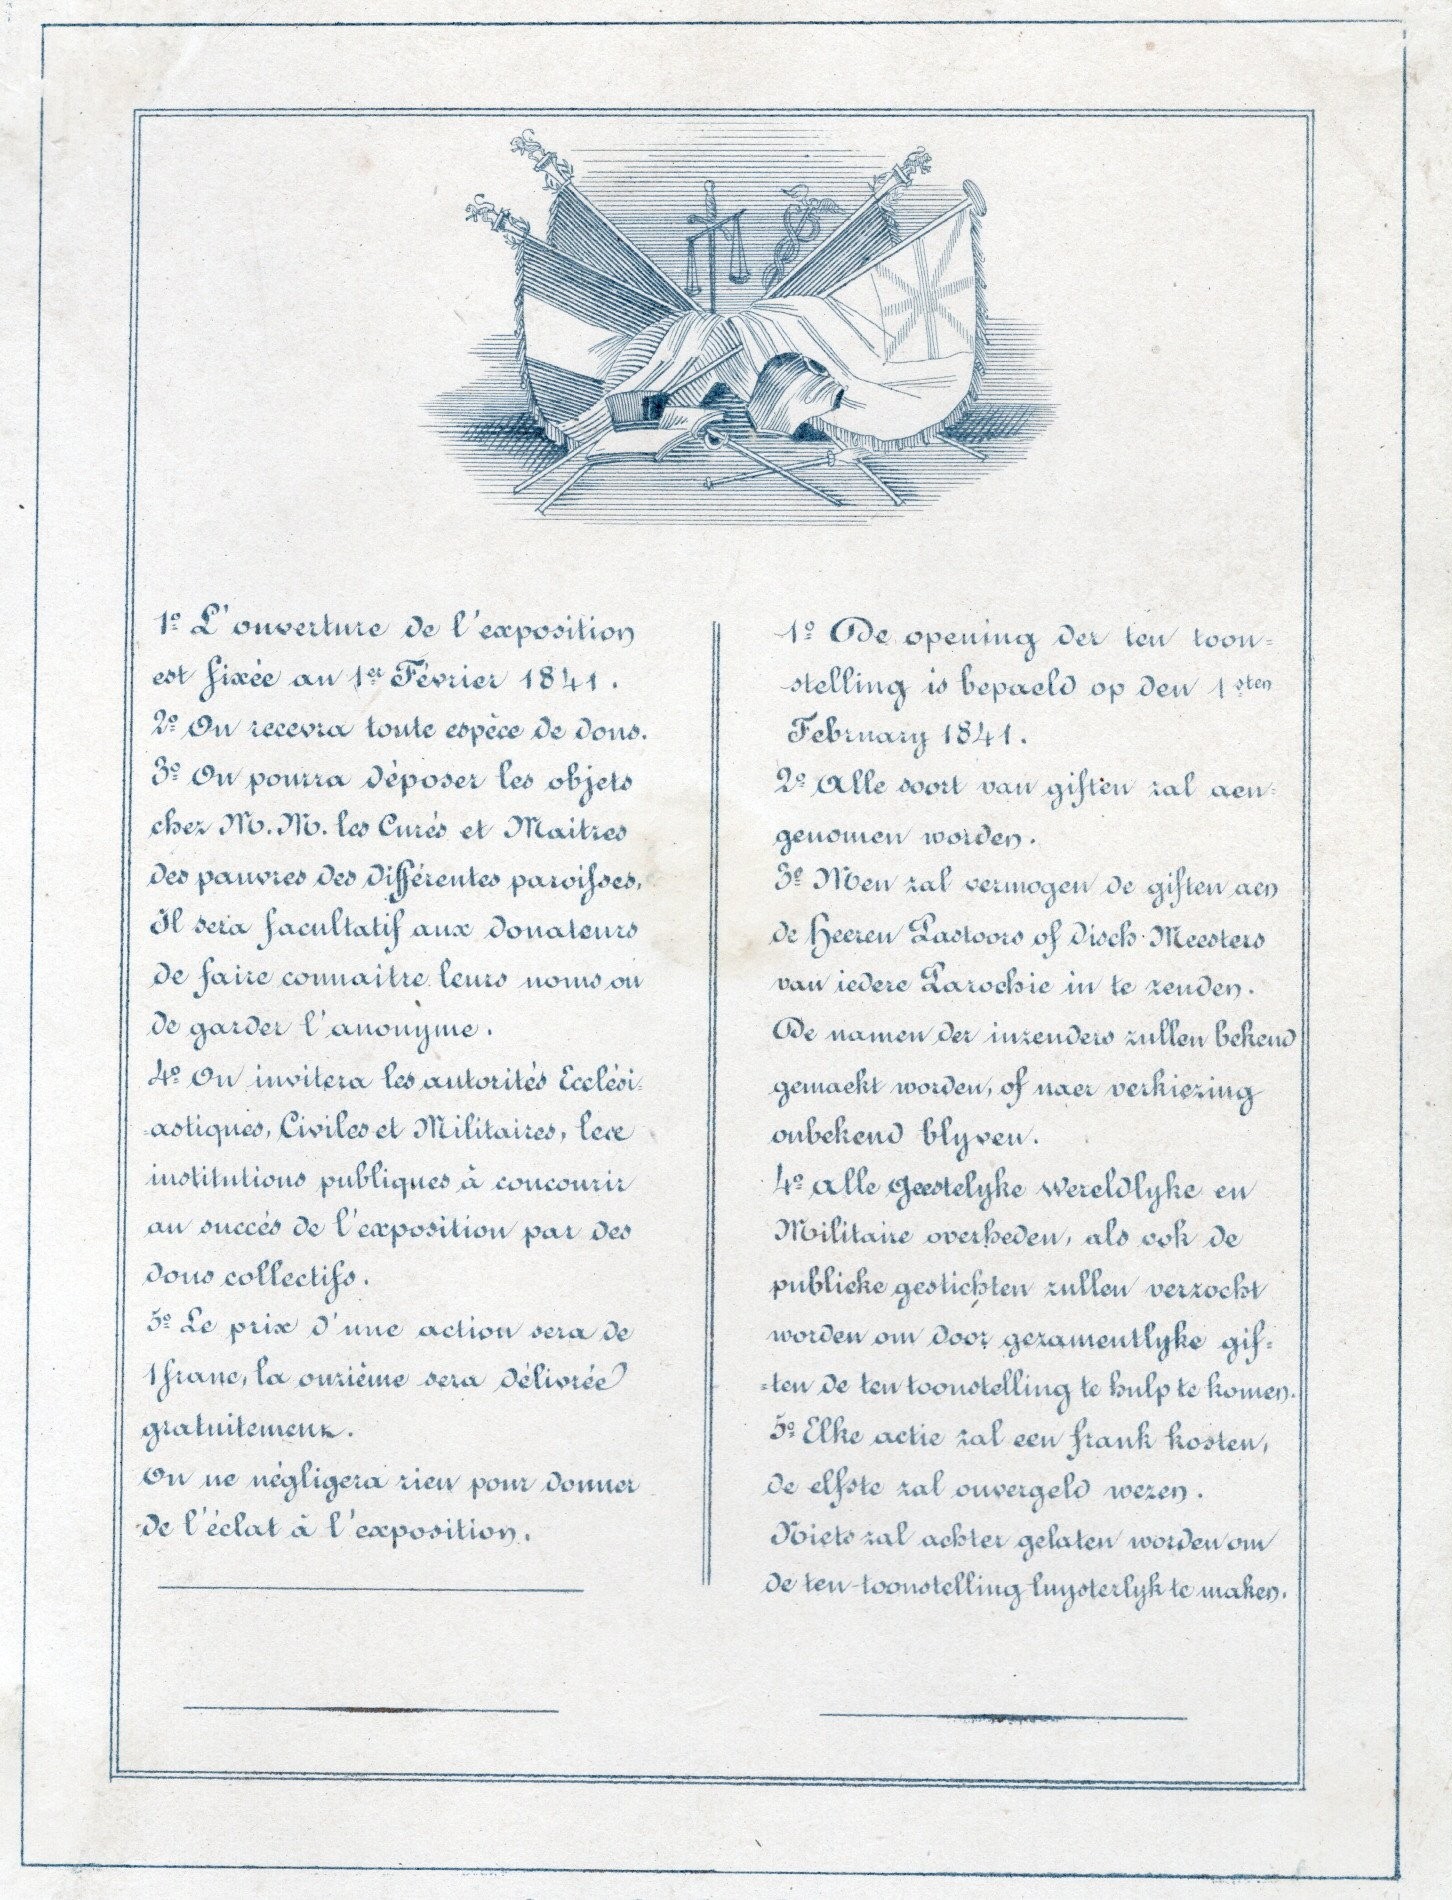 1º L'ouverture de l'exposition
est fixée au 1er Février 1841.
2º On recevra toute espèce de dons.
3º On pourra déposer les objets
chez M.M. les Curés et Maitres
des pauvres des différentes paroisses,
Il sera facultatif aux donateurs
de faire connaitre leurs noms ou
de garder l'anonyme.
4º On invitera les autorités Ecclési-
-astiques, Civiles et Militaires, les
institutions publiques à concourir
au succés de l'exposition par des
dons collectifs.
5º Le prix d'une action sera de
1 franc, la onzième sera délivrée
gratuitement.
On ne négligera rien pour donner
de l'éclat à l'exposition.
1º De opening der ten toon=
stelling is bepaeld op den 1sten
February 1841.
2º Alle soort van giften zal aen=
genomen worden.
3º Men zal vermogen de giften aen
de Heeren Pastoors of Disch-Meesters
van iedere Parochie in te zenden.
De namen der inzenders zullen bekend
gemaekt worden, of naer verkiezing
onbekend blyven.
4º Alle Geestelyke Wereldlyke en
Militaire overheden, als ook de
publieke gestichten zullen verzocht
worden om door gezamentlyke gif=
=ten de ten toonstelling te hulp te komen.
5º Elke actie zal een frank kosten,
de elfste zal onvergeld wezen.
Niets zal achter gelaten worden om
de ten-toonstelling luysterlyk te maken.